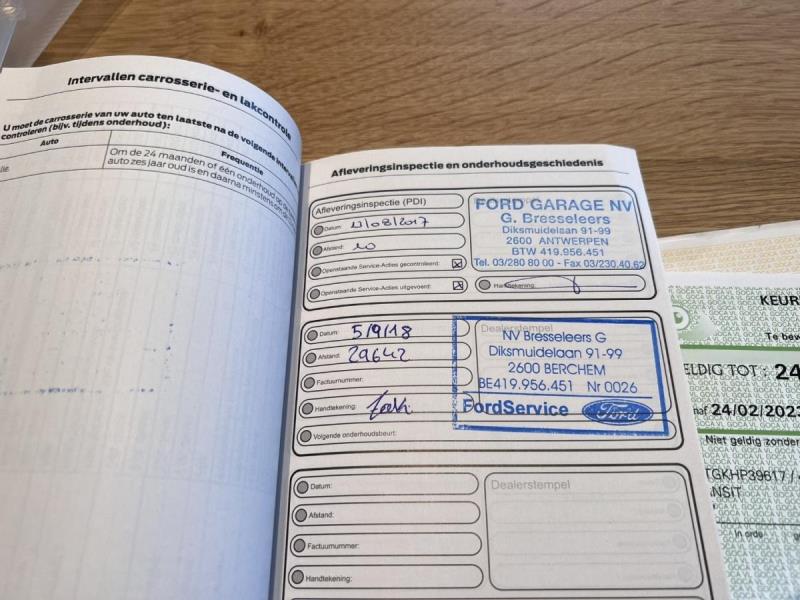 Intervallen carrosserie- en lakcontrole
U moet de carrosserie van uw auto ten laatste na de volgende
controleren (bijv. tijdens onderhoud):
Auto
Frequentie
Om de 24 maanden of één onderhoud op de
auto zes jaar oud is en daarna minstens om de
Afleveringsinspectie en onderhoudsgeschiedenis
Afleveringsinspectie (PDI)
Datum: /08/2017
Afstand: 10
Openstaande Service-Acties gecontroleerd:
Openstaande Service-Acties uitgevoerd:
FORD GARAGE NV
G. Bresseleers
Diksmuidelaan 91-99
2600 ANTWERPEN
BTW 419.956.451
Tel. 03/280 80 00 - Fax 03/230.40.62
Handtekening:
Datum: 5/9/18
Afstand: 29642
Factuurnummer:
Handtekening:
Volgende onderhoudsbeurt:
Dealerstempel
NV Bresseleers G
Diksmuidelaan 91-99
2600 BERCHEM
BE419.956.451 Nr 0026
FordService Ford
Datum:
Afstand:
Factuurnummer:
Handtekening:
Dealerstempel
KEUR
Te bev
ELDIG TOT : 24
af 24/02/202
Niet geldig zonder
TGKHP39617 /
NSIT
in orde